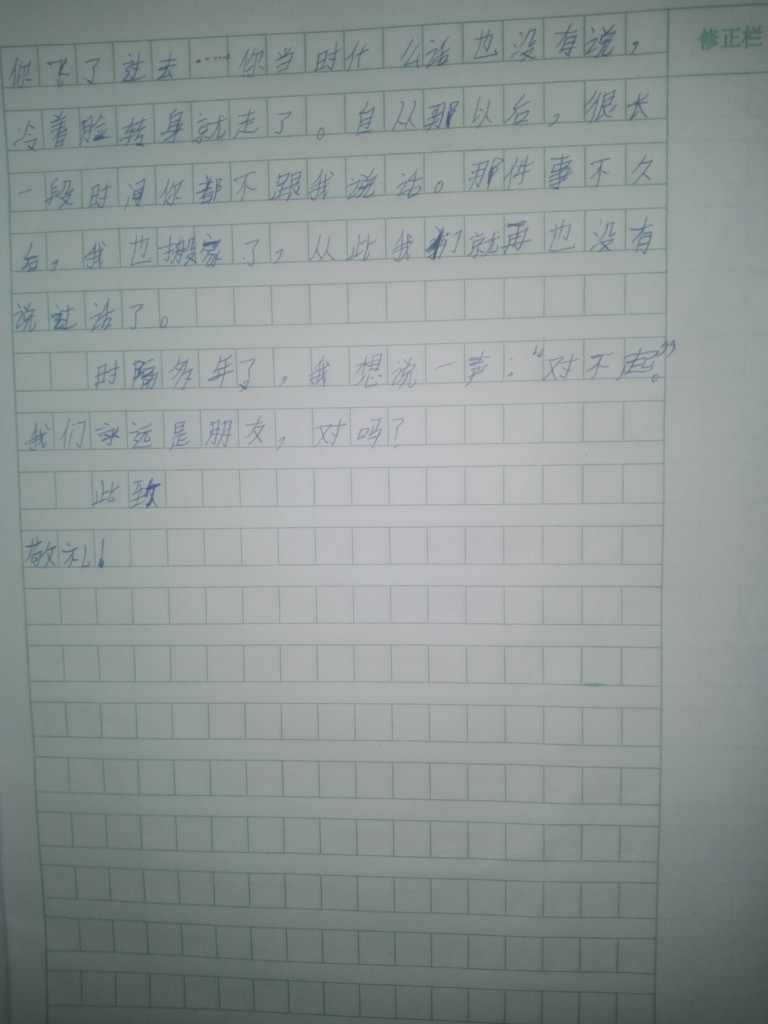 你飞了过去……你当时什么话也没有说，
修正栏
冷着脸转身就走了。自从那以后，很长
一段时间你都不跟我说话。那件事不久
后，我也搬家了，从此我们就再也没有
说过话了。
时隔多年了，我想说一声：“对不起。”
我们永远是朋友，对吗？
此致
敬礼！